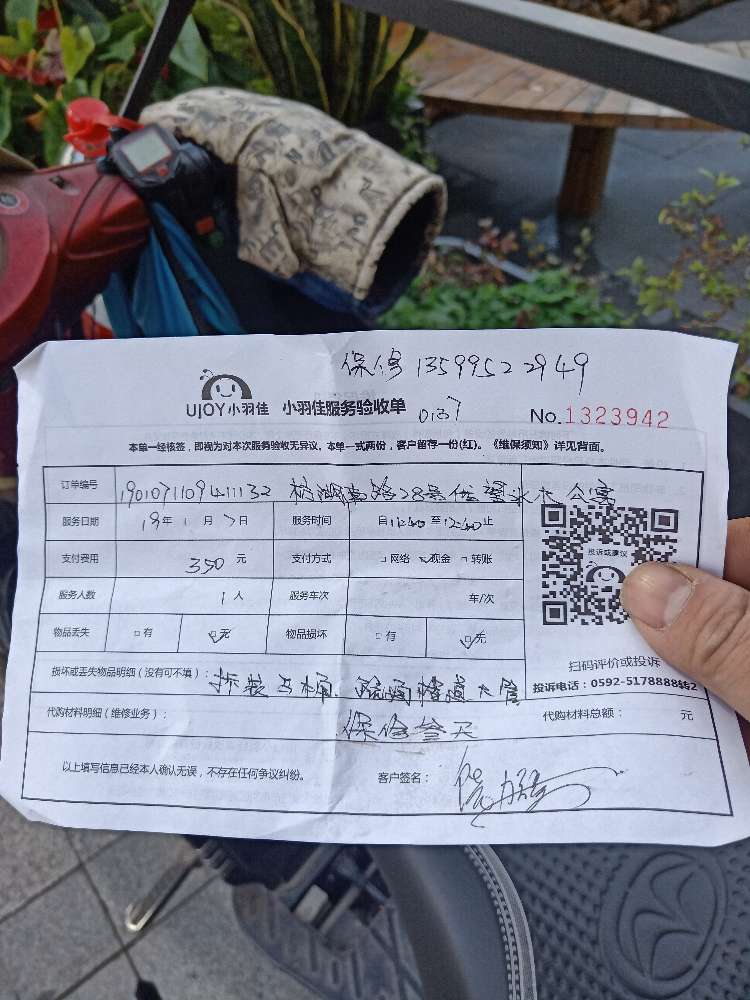 保修 13599522949
UJOY小羽佳 小羽佳服务验收单 0137 No.1323942
本单一经核签，即视为对本次服务验收无异议。本单一式两份，客户留存一份(红)。《维保须知》详见背面。
订单编号 190107110941132 南路28号 公寓
服务日期 19年1月7日 服务时间 自11:40至12:40止
投诉或建议
支付费用 350元 支付方式 □网络 ☑现金 □转账
服务人数 1人 服务车次 车/次
物品丢失 □有 ☑无 物品损坏 □有 ☑无
扫码评价或投诉
损坏或丢失物品明细（没有可不填）： 拆装马桶、疏通 投诉电话：0592-5178888转2
代购材料明细（维修业务）： 保修叁天 代购材料总额： 元
以上填写信息已经本人确认无误，不存在任何争议纠纷。 客户签名：